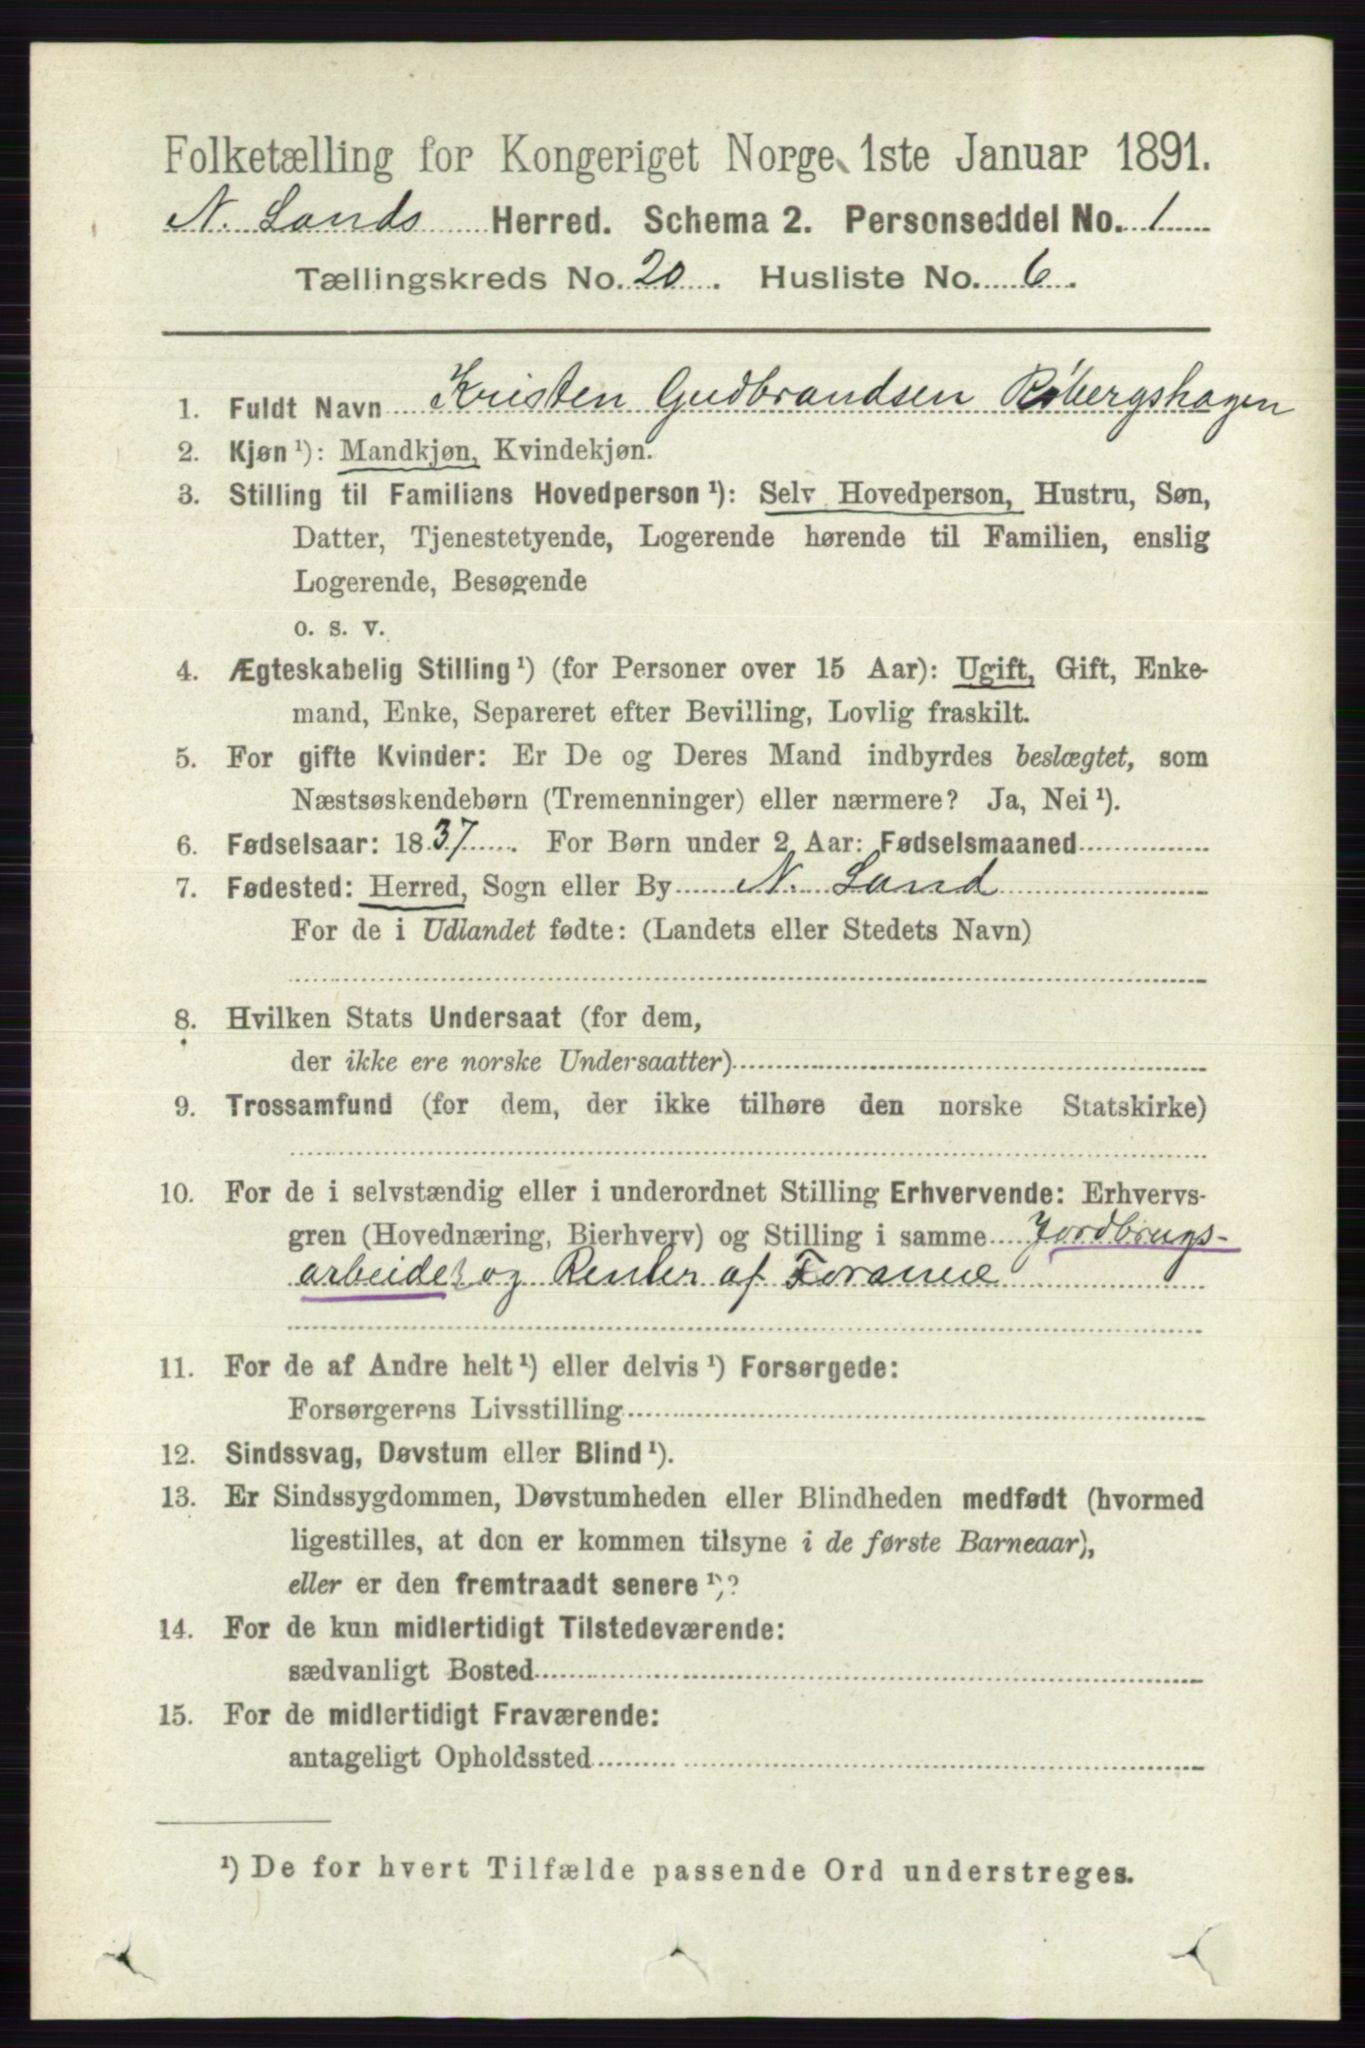 Folketælling for Kongeriget Norge 1ste Januar 1891.
N. Lands Herred. Schema 2. Personseddel No. 1
Tællingskreds No. 20. Husliste No. 6.
1. Fuldt Navn Kristen Gudbrandsen Røbergshagen
2. Kjøn ¹): Mandkjøn, Kvindekjøn.
3. Stilling til Familiens Hovedperson ¹): Selv Hovedperson, Hustru, Søn,
Datter, Tjenestetyende, Logerende hørende til Familien, enslig
Logerende, Besøgende
o. s. v.
4. Ægteskabelig Stilling ¹) (for Personer over 15 Aar): Ugift, Gift, Enke-
mand, Enke, Separeret efter Bevilling, Lovlig fraskilt.
5. For gifte Kvinder: Er De og Deres Mand indbyrdes beslægtet, som
Næstsøskendebørn (Tremenninger) eller nærmere? Ja, Nei ¹).
6. Fødselsaar: 1837. For Børn under 2 Aar: Fødselsmaaned
7. Fødested: Herred, Sogn eller By N. Land
For de i Udlandet fødte: (Landets eller Stedets Navn)
8. Hvilken Stats Undersaat (for dem,
der ikke ere norske Undersaatter)
9. Trossamfund (for dem, der ikke tilhøre den norske Statskirke)
10. For de i selvstændig eller i underordnet Stilling Erhvervende: Erhvervs-
gren (Hovednæring, Bierhverv) og Stilling i samme Jordbrugs-
arbeider og Renter af Formue
11. For de af Andre helt ¹) eller delvis ¹) Forsørgede:
Forsørgerens Livsstilling
12. Sindssvag, Døvstum eller Blind ¹).
13. Er Sindssygdommen, Døvstumheden eller Blindheden medfødt (hvormed
ligestilles, at den er kommen tilsyne i de første Barneaar),
eller er den fremtraadt senere ¹)?
14. For de kun midlertidigt Tilstedeværende:
sædvanligt Bosted
15. For de midlertidigt Fraværende:
antageligt Opholdssted
¹) De for hvert Tilfælde passende Ord understreges.